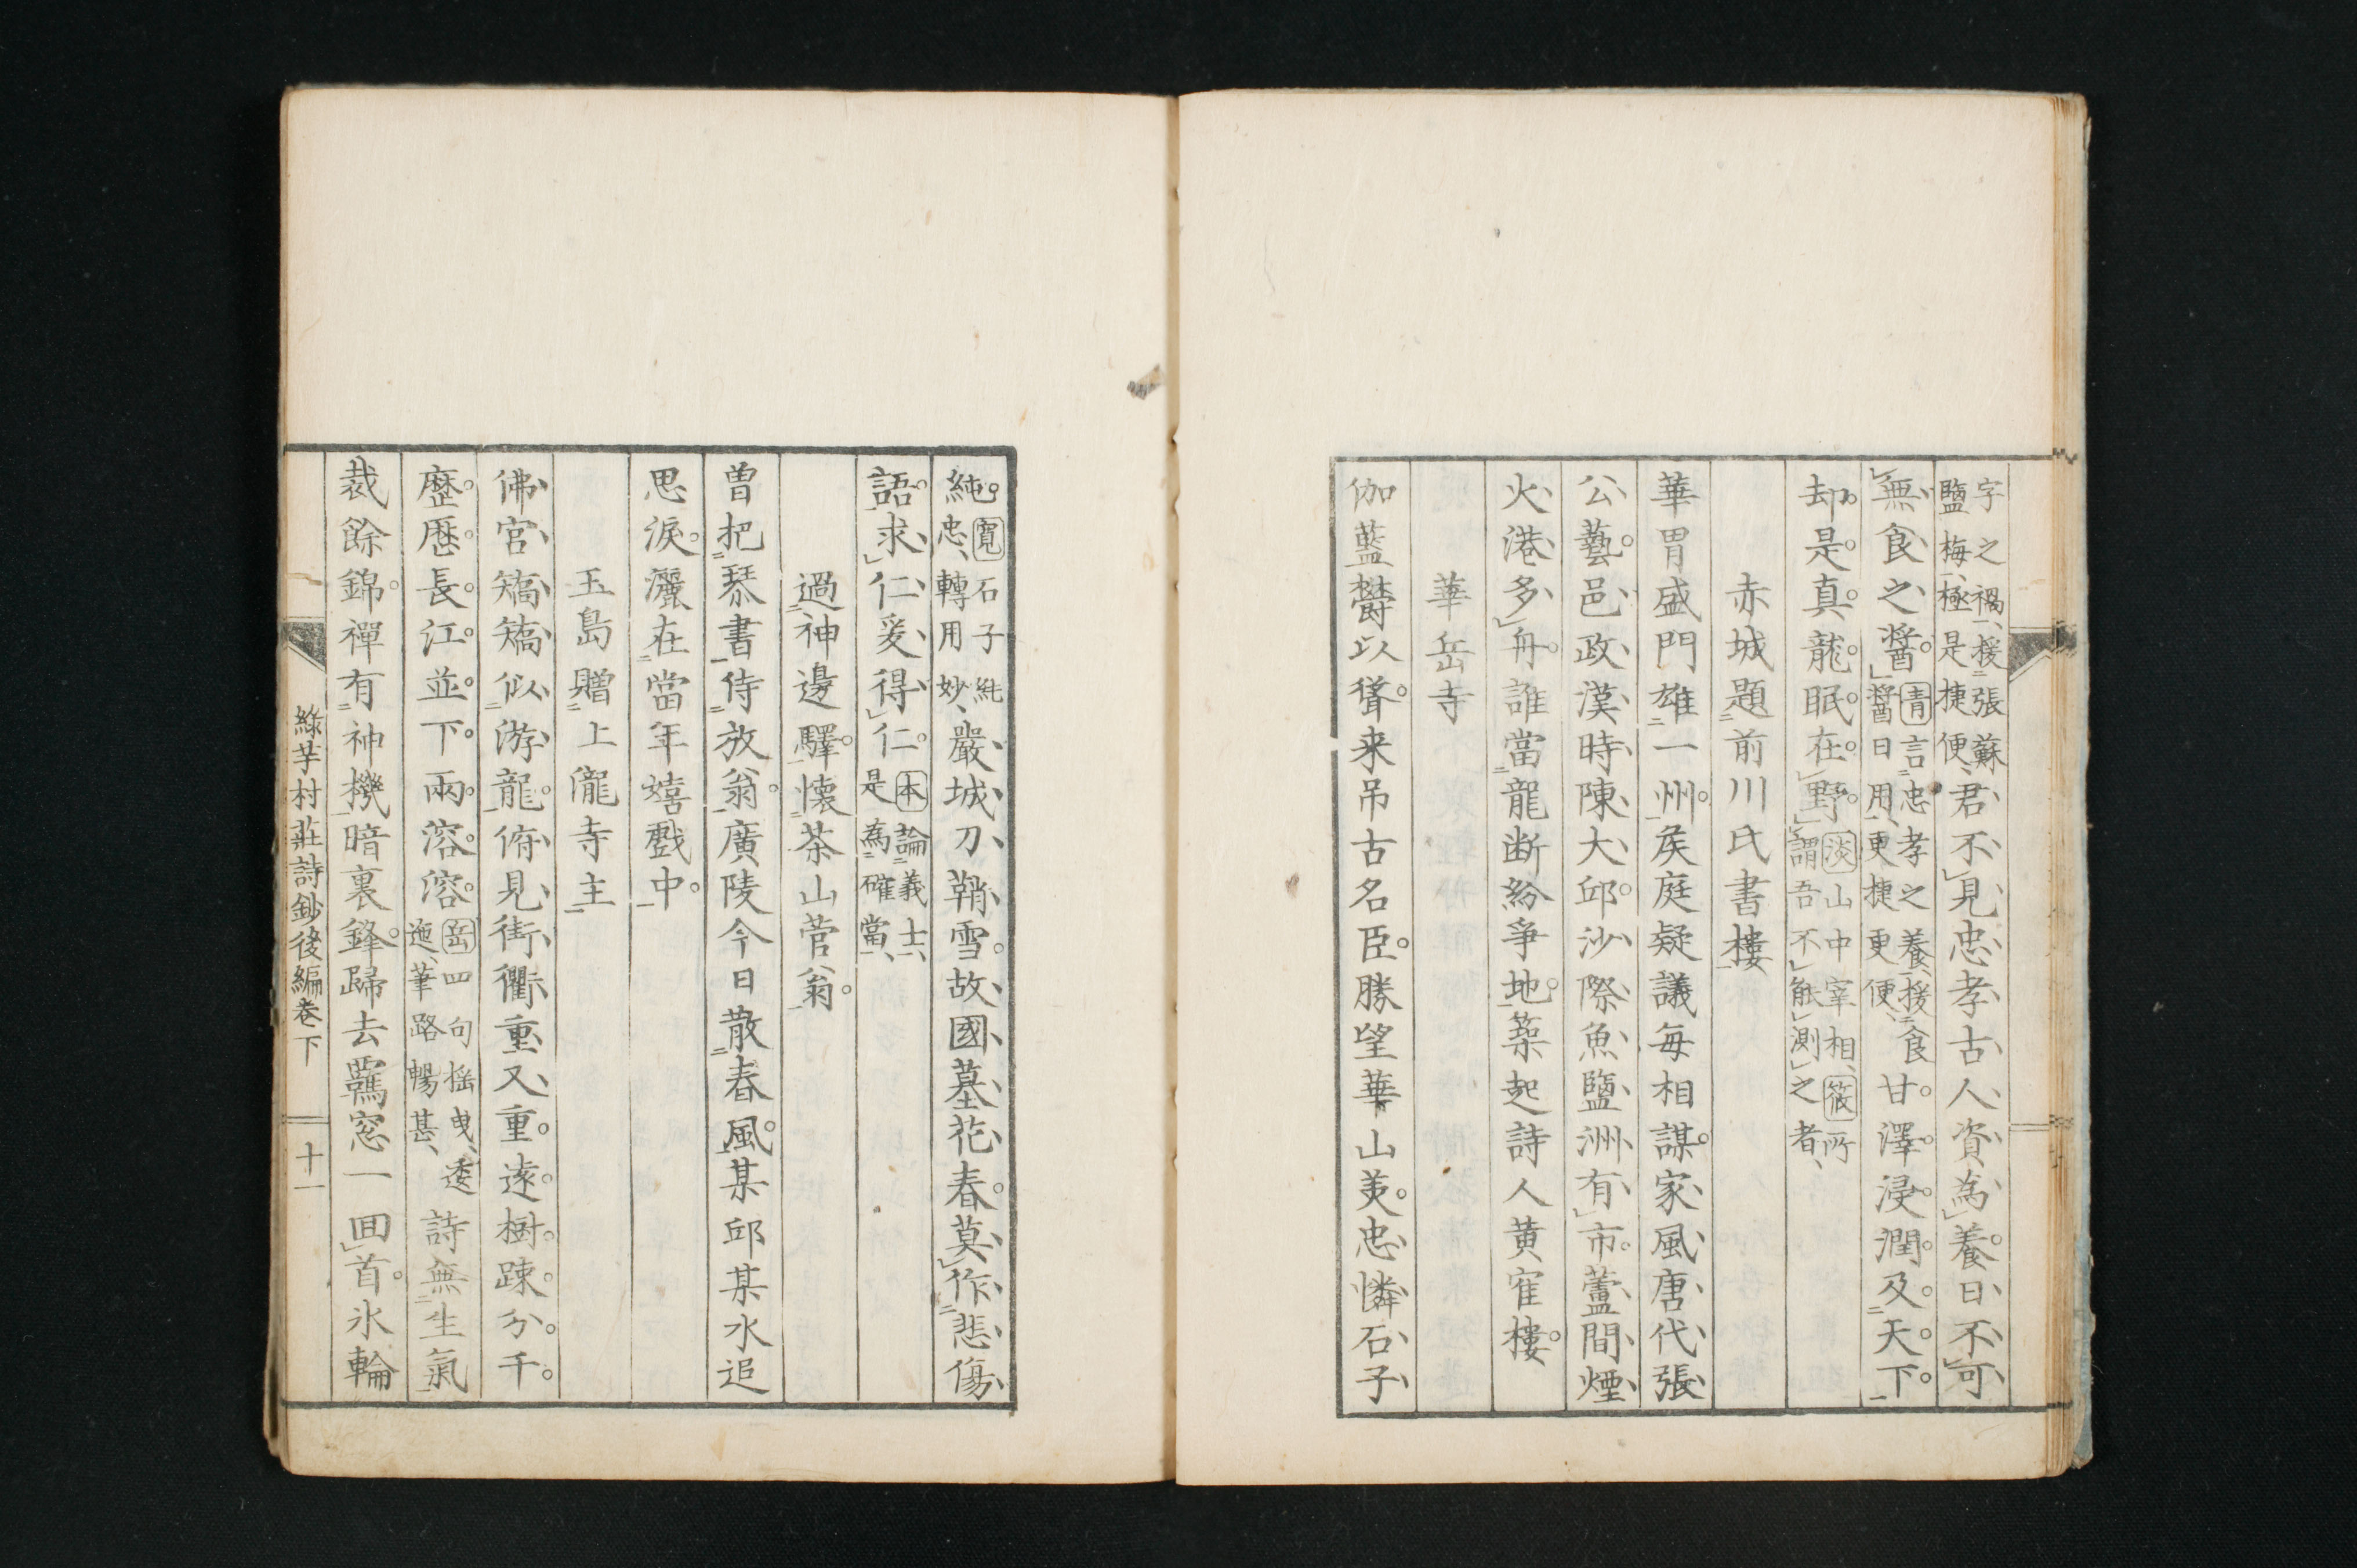 字之禍援張蘇
鹽梅極是捷便君不見忠孝古人資為養日不可
無食之醤靑言忠孝之養援食
醤日用更捷更便甘澤浸潤及天下
却是真龍眠在野淡山中宰相筱所
謂吾不能測之者
赤城題前川氏書樓
華冑盛門雄一州矦庭疑議每相謀家風唐代張
公藝邑政漢時陳大邱沙際魚鹽洲有市蘆間煙
火港多舟誰當龍断紛爭地築起詩人黄寉樓
華岳寺
伽藍欝以聳来吊古名臣勝望華山美忠憐石子
純寬石子純
忠轉用妙嚴城刀鞘雪故國墓花春莫作悲傷
語求仁爰得仁本論義士
是為確當
過神邊驛懐茶山菅翁
曽把琴書侍放翁廣陵今日散春風某邱某水追
思淚灑在當年嬉戲中
玉島贈上瀧寺主
佛宮矯矯似游龍俯見街衢重又重遠樹踈分千
歴歴長江並下兩溶溶岳四句揺曳逶
迤筆路暢甚詩無生氣
裁餘錦禪有神機暗裏鋒歸去羈窓一回首氷輪
綠芋村莊詩鈔後編卷下
十一